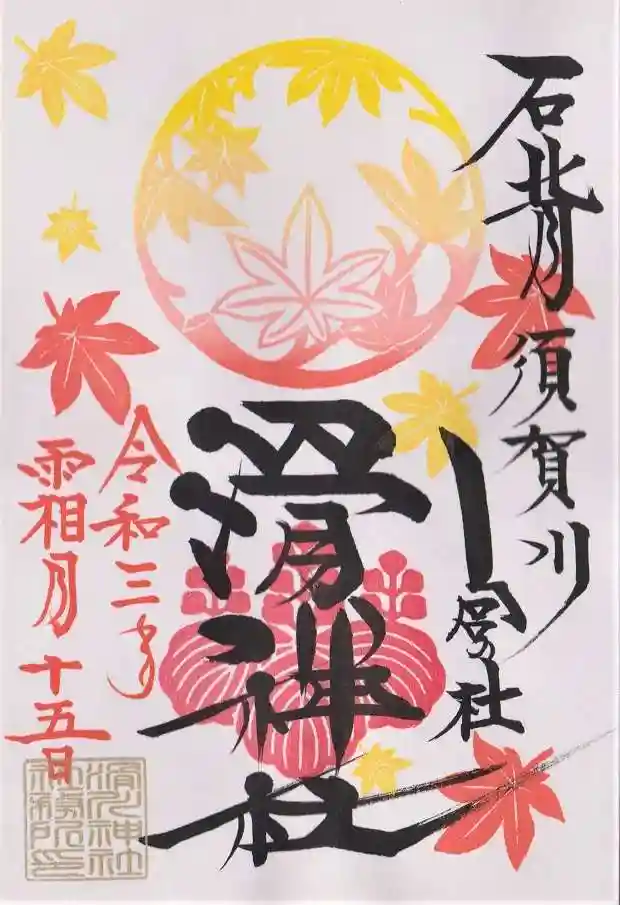 石背 須賀川
滑神社
令和三年
霜月十五日
滑川神社
社務所印